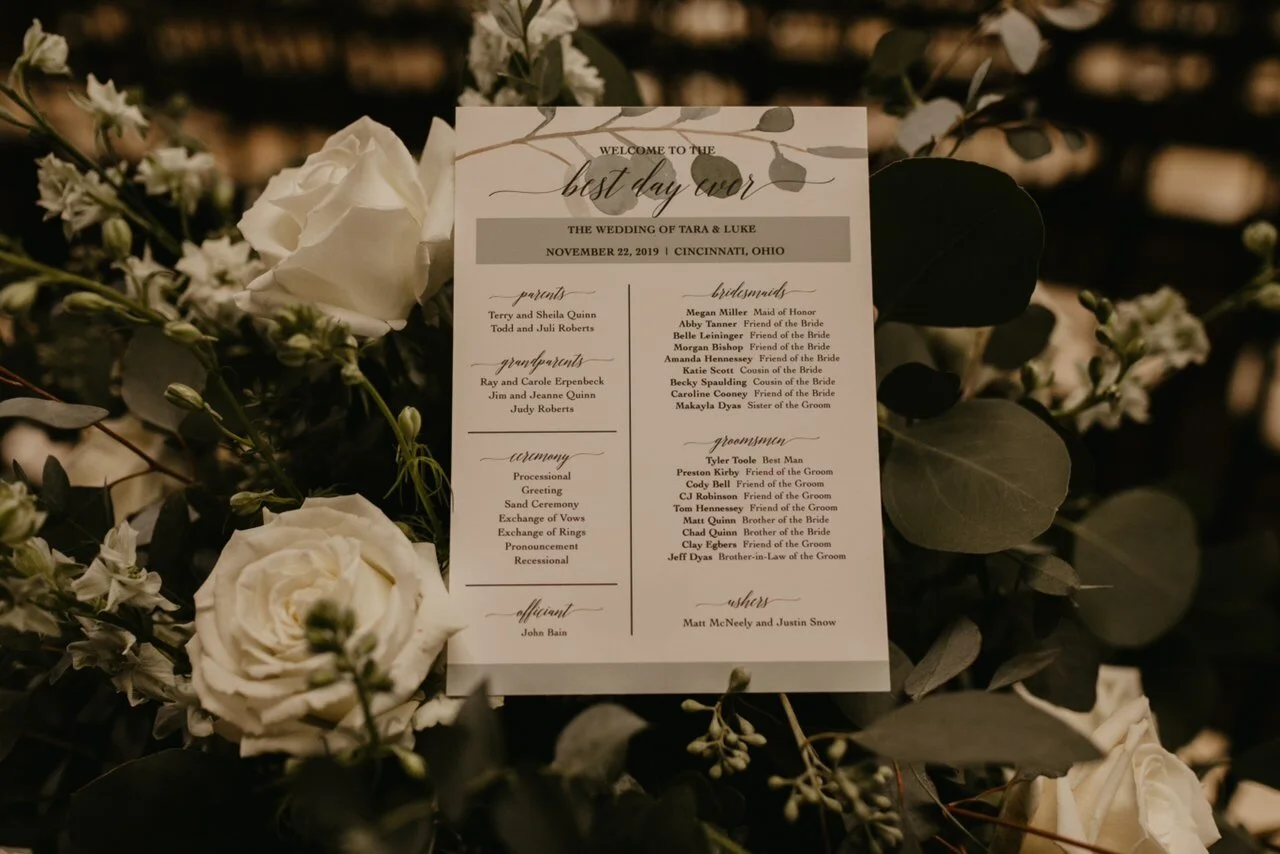 WELCOME TO THE
best day ever
THE WEDDING OF TARA & LUKE
NOVEMBER 22, 2019 | CINCINNATI, OHIO
parents
Terry and Sheila Quinn
Todd and Juli Roberts
grandparents
Ray and Carole Erpenbeck
Jim and Jeanne Quinn
Judy Roberts
ceremony
Processional
Greeting
Sand Ceremony
Exchange of Vows
Exchange of Rings
Pronouncement
Recessional
officiant
John Bain
bridesmaids
Megan Miller Maid of Honor
Abby Tanner Friend of the Bride
Belle Leininger Friend of the Bride
Morgan Bishop Friend of the Bride
Amanda Hennessey Friend of the Bride
Katie Scott Cousin of the Bride
Becky Spaulding Cousin of the Bride
Caroline Cooney Friend of the Bride
Makayla Dyas Sister of the Groom
groomsmen
Tyler Toole Best Man
Preston Kirby Friend of the Groom
Cody Bell Friend of the Groom
CJ Robinson Friend of the Groom
Tom Hennessey Friend of the Groom
Matt Quinn Brother of the Bride
Chad Quinn Brother of the Bride
Clay Egbers Friend of the Groom
Jeff Dyas Brother-in-Law of the Groom
ushers
Matt McNeely and Justin Snow